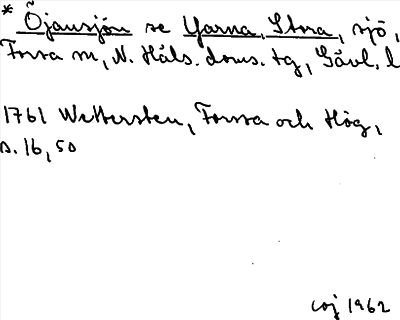 * Öjansjön se Yarna, Stora, sjö,
Forsa sn, N. Häls. doms. tg, Gävl. l
1761 Wettersten, Forssa och Hög,
s. 16, 50
1962